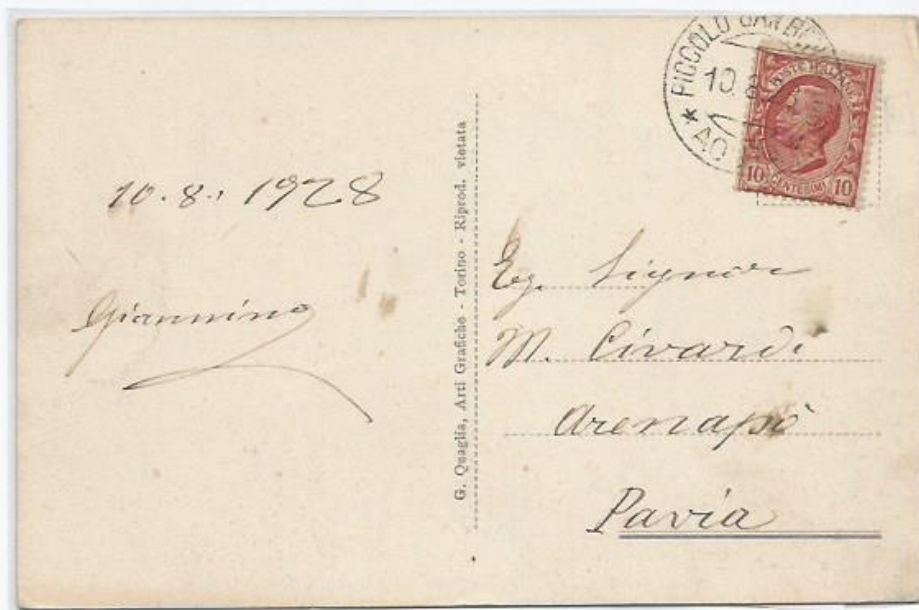 10.8.1928
Giannino
G. Quaglia, Arti Grafiche - Torino - Riprod. vietata
PICCOLO SAN
10.8
* AO
POSTE ITALIANE
10 CENTESIMI 10
Eg. Signor
M. Civardi
Arenapò
Pavia